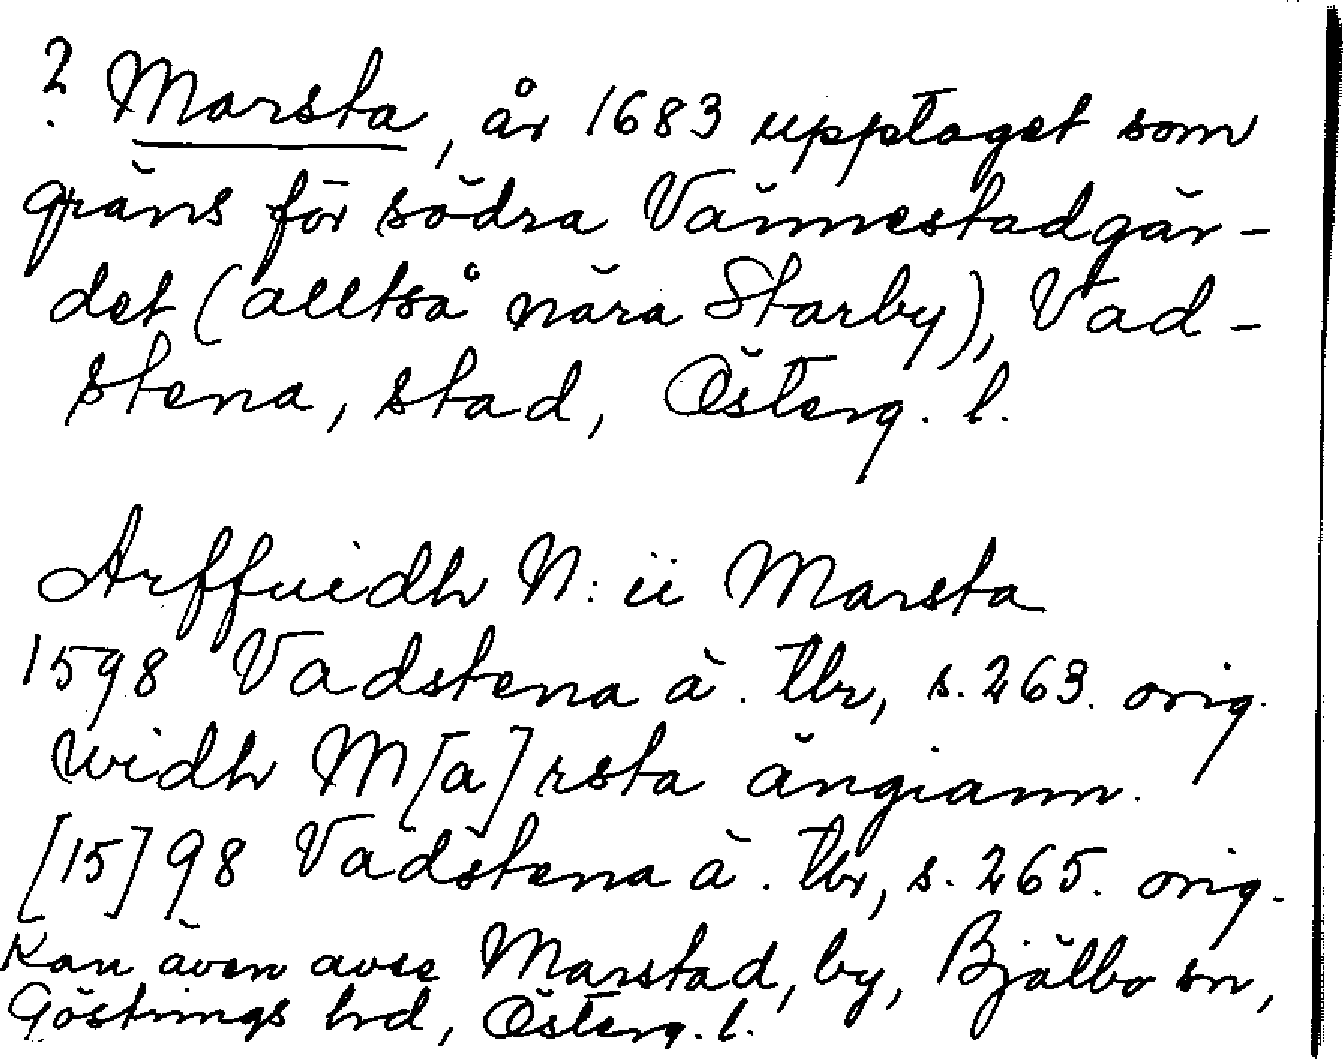 ? Marsta, år 1683 upptaget som
gräns för södra Vännestadgär-
det (alltså nära Starby), Vad-
stena, stad, Österg. l.
Arffuidh N: ii Marsta
1598 Vadstena ä. tbr, s. 263. orig.
widh M[a]rsta ängiann.
[15]98 Vadstena ä. tbr, s. 265. orig.
Kan även avse Marstad, by, Bjälbo sn,
Göstrings hd, Österg. l.